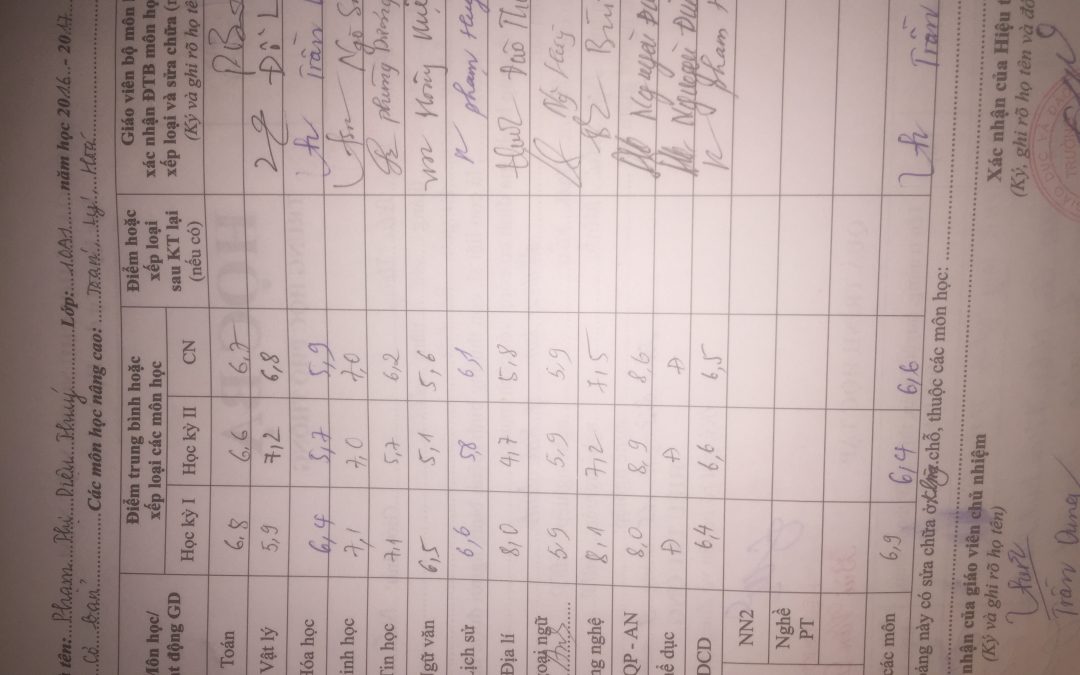 tên: Phạm Thị Diệu Thuý Lớp: 10A1 năm học 2016 - 2017
Cơ bản Các môn học nâng cao: Toán, Lý, Hoá
Môn học/
ạt động GD
Điểm trung bình hoặc
xếp loại các môn học
Học kỳ I Học kỳ II CN
Điểm hoặc
xếp loại
sau KT lại
(nếu có)
Giáo viên bộ môn
xác nhận ĐTB môn học
xếp loại và sửa chữa
(Ký và ghi rõ họ tên
Toán 6,8 6,6 6,7
Vật lý 5,9 7,2 6,8
Hóa học 6,4 5,7 5,9 Trần
inh học 7,1 7,0 7,0 Ngô
Tin học 7,1 5,7 6,2 Phương
gữ văn 6,5 5,1 5,6 Hồng
Lịch sử 6,6 5,8 6,1 Phạm
Địa lí 8,0 4,7 5,8 Đào
goại ngữ 5,9 5,9 5,9
ng nghệ 8,1 7,2 7,5 Bùi
QP - AN 8,0 8,9 8,6 Nguyễn
hể dục Đ Đ Đ Nguyễn
DCD 6,4 6,6 6,5 Phạm
NN2
Nghề
PT
các môn 6,9 6,4 6,6 Trần
ảng này có sửa chữa ở: chỗ, thuộc các môn học:
nhận của giáo viên chủ nhiệm
(Ký và ghi rõ họ tên)
Trần Dung
Xác nhận của Hiệu t
(Ký, ghi rõ họ tên và đó